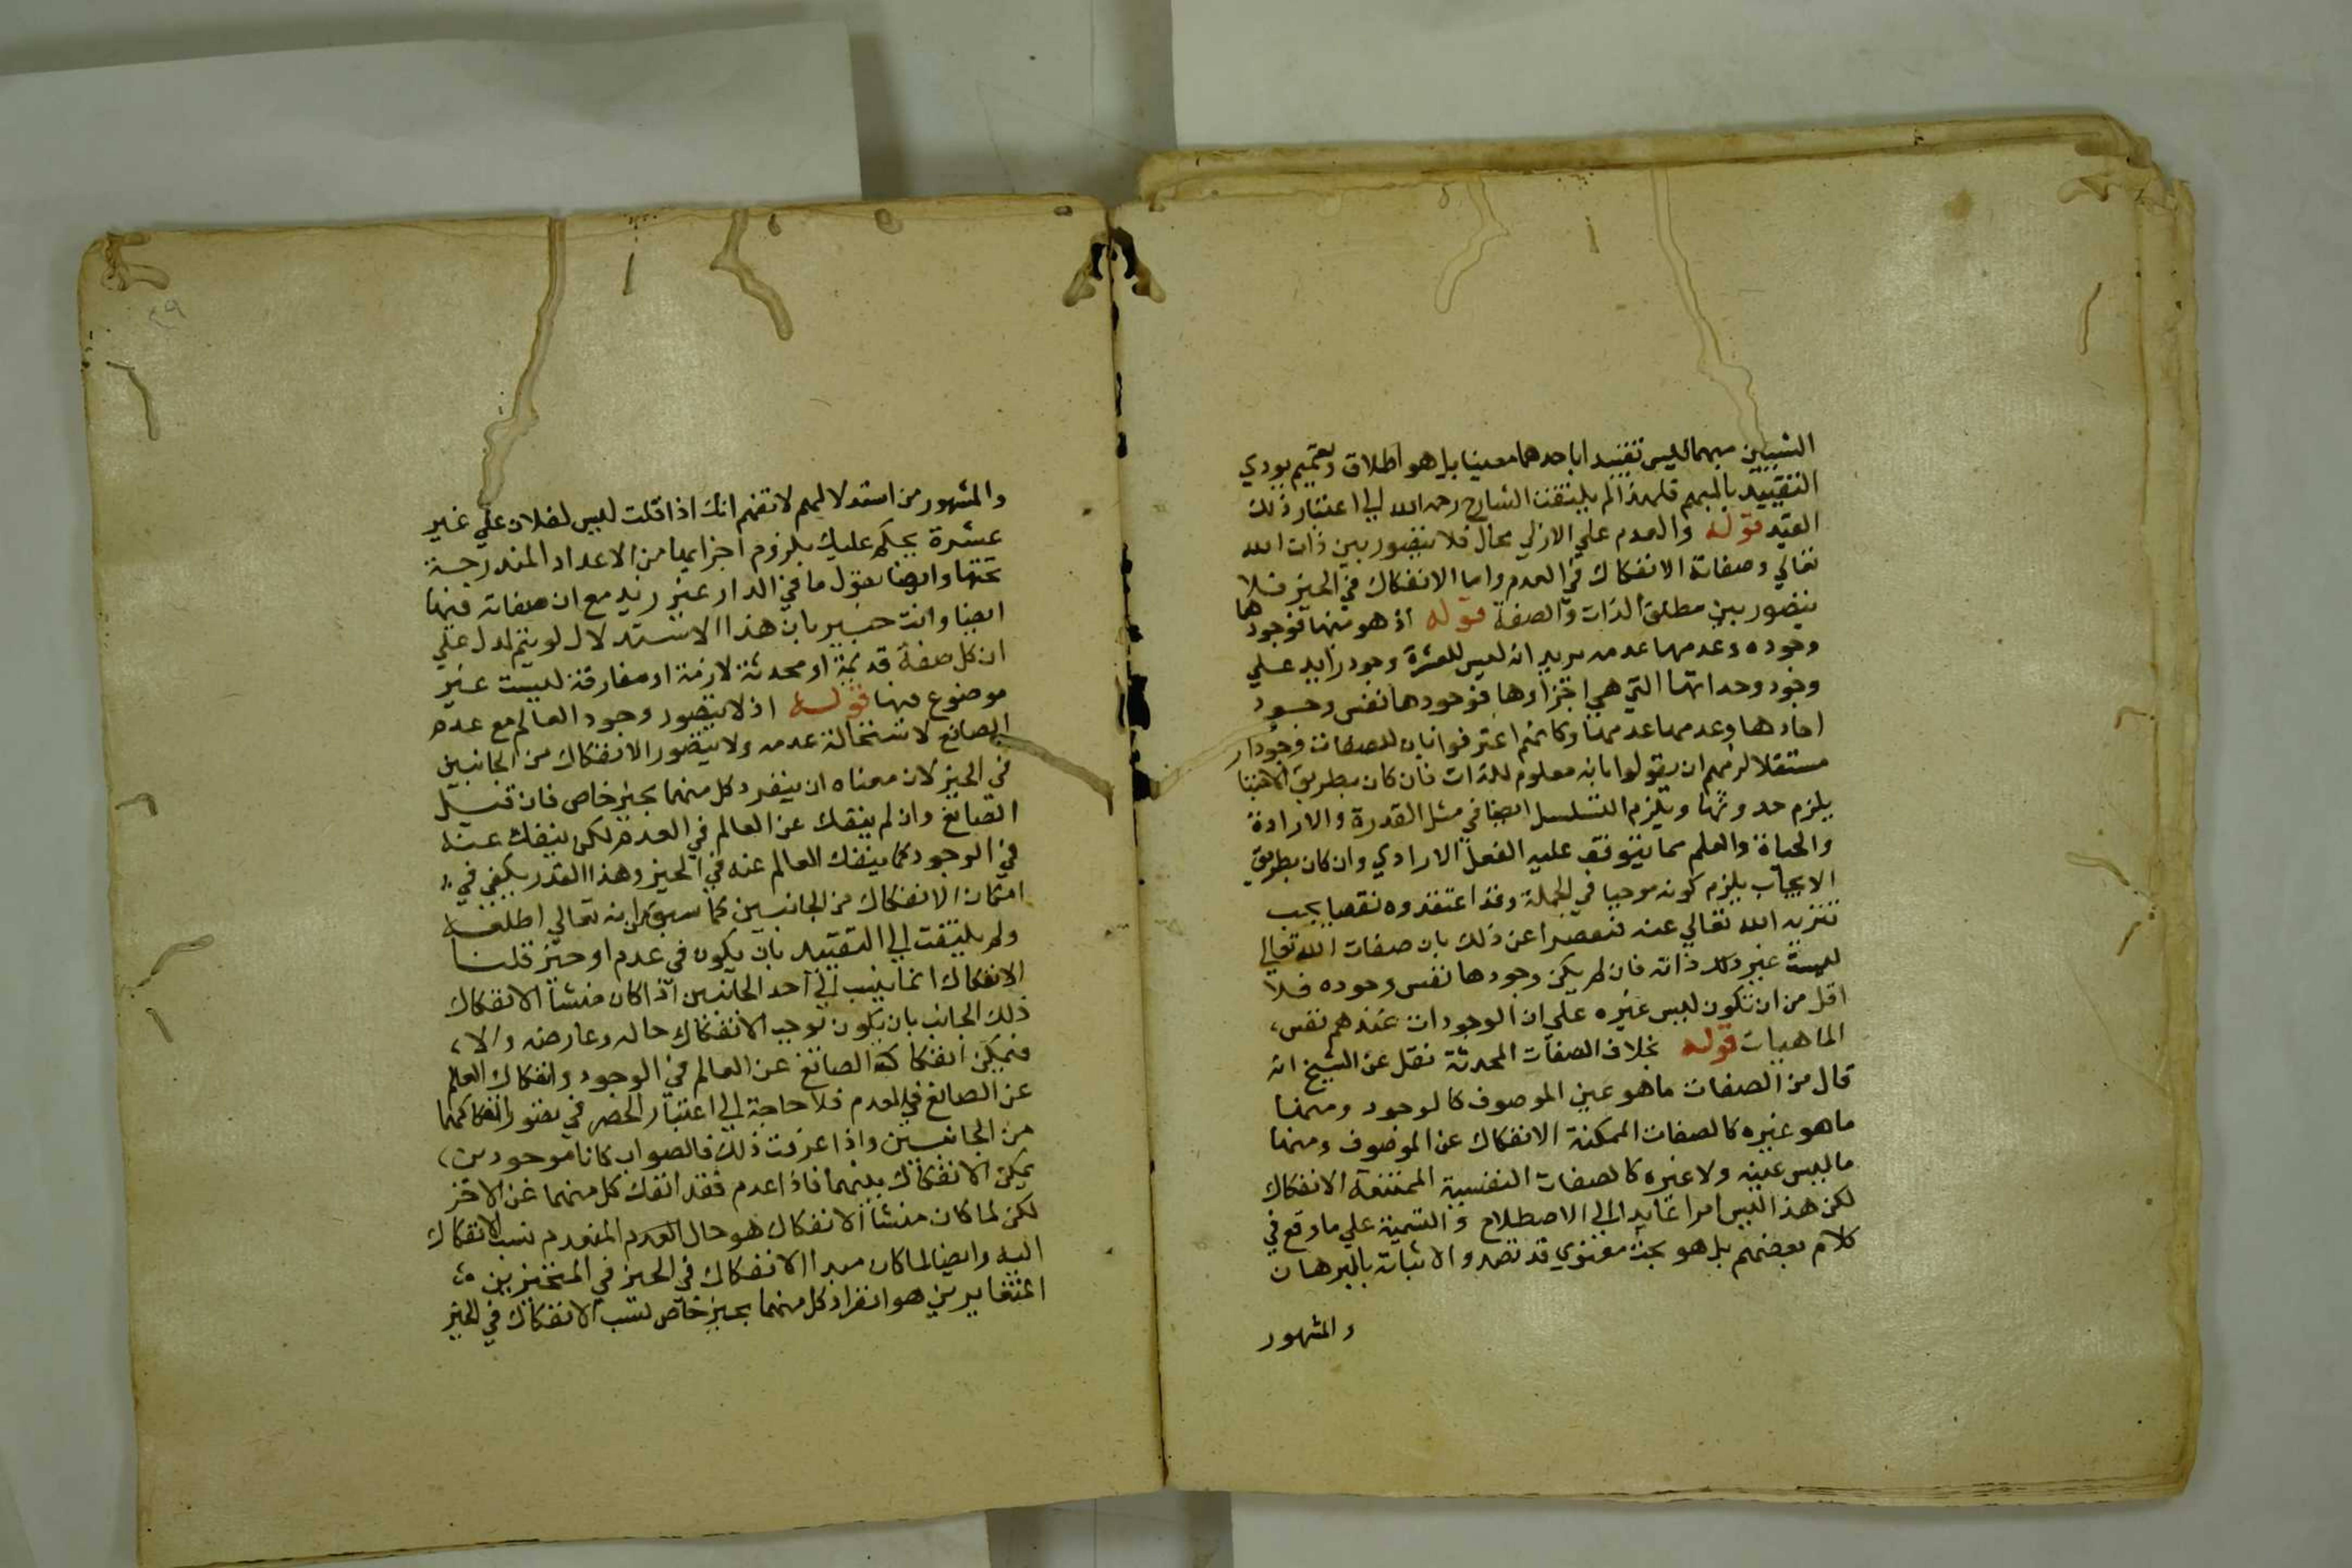 الشيئين مبهما ليس تقييدا باحدهما معينا بل هو اطلاق وتعميم يودي
التقييد بالمبهم فلهذا لم يلتفت الشارح رحمه الله الي اعتبار ذلك
القيد قوله والعدم علي الازلي محال فلا يتصور بين ذات الله
تعالي وصفاته الانفكاك في العدم واما الانفكاك في الحيز فلا
يتصور بين مطلق الذات والصفة قوله اذ هو منها فوجودها
وجوده وعدمها عدمه يريد انه ليس للعشرة وجود زايد علي
وجود وحداتها التي هي اجزاوها فوجودها نفس وجود
احادها وعدمها عدمها وكانهم اعترفوا بان للصفات وجودا
مستقلا لزمهم ان يقولوا بانه معلوم للذات فان كان بطريق الاختيار
يلزم حدوثها ويلزم التسلسل ايضا في مثل القدرة والارادة
والحياة والعلم مما يتوقف عليه الفعل الارادي وان كان بطريق
الايجاب يلزم كونه موجبا في الجملة وقد اعتقدوه نقصا يجب
تنزيه الله تعالي عنه فتعصرا عن ذلك بان صفات الله تعالي
ليست غير ذاته فان لم يكن وجودها نفس وجوده فلا
اقل من ان تكون ليس غيره علي ان الوجودات عندهم نفس
الماهيات قوله بخلاف الصفات المحدثة نقل عن الشيخ انه
قال من الصفات ما هو عين الموصوف كالوجود ومنها
ما هو غيره كالصفات الممكنة الانفكاك عن الموصوف ومنها
ما ليس عينه ولا غيره كالصفات النفسية الممتنعة الانفكاك
لكن هذا ليس امرا عايدا الي الاصطلاح والتسمية علي ما وقع في
كلام بعضهم بل هو بحث معنوي قد تصدوا لاثباته بالبرهان
والمشهور
والمشهور من استدلالهم لا تفهم انك اذا قلت ليس لفلان علي غير
عشرة يحكم عليك بلزوم اجزايها من الاعداد المندرجة
تحتها وايضا يقول ما في الدار غير زيد مع ان صفاته فيها
ايضا وانت خبير بان هذا الاستدلال لو يتم لدل علي
ان كل صفة قديمة او محدثة لازمة او مفارقة ليست غير
موضوع فيها قوله اذ لا يتصور وجود العالم مع عدم
الصانع لاستحالة عدمه ولا يتصور الانفكاك من الجانبين
في الحيز لان معناه ان ينفرد كل منهما بحيز خاص فان قيل
الصانع وان لم ينفك عن العالم في العدم لكن ينفك عنه
في الوجود كما ينفك العالم عنه في الحيز وهذا القدر يكفي في
امكان الانفكاك من الجانبين كما سبق انه تعالي اطلقه
ولم يلتفت الي التقييد بان يكون في عدم او حيز قلنا
الانفكاك انما ينسب الي احد الجانبين اذا كان منشأ الانفكاك
ذلك الجانب بان يكون توجب الانفكاك حاله وعارضه والا
فيمكن انفكاك الصانع عن العالم في الوجود وانفكاك العلم
عن الصانع في العدم فلا حاجة الي اعتبار الحصر في تصور انفكاكهما
من الجانبين واذا عرفت ذلك فالصواب كانا موجودين
يمكن الانفكاك بينهما فاذا عدم فقد انفك كل منهما عن الاخر
لكن لما كان منشأ الانفكاك هو حال العدم المنعدم نسب الانفكاك
اليه وايضا لما كان مبدا الانفكاك في الحيز في المتحيزين
المتغايرين هو انفراد كل منهما بحيز خاص نسب الانفكاك في الحيز